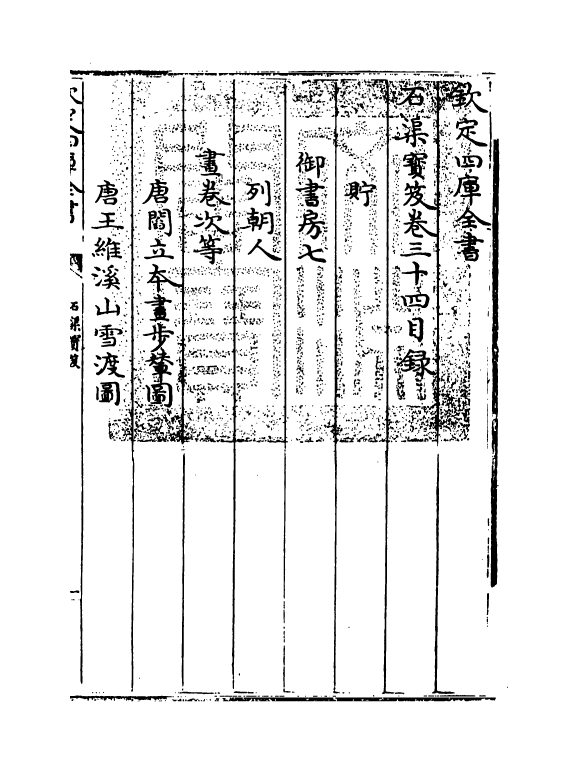 欽定四庫全書
石渠寳笈卷三十四目録
貯
御書房七
列朝人
畫卷次等
唐閻立本畫步輦圖
唐王維溪山雪渡圖
欽定四庫全書
石渠寳笈
一